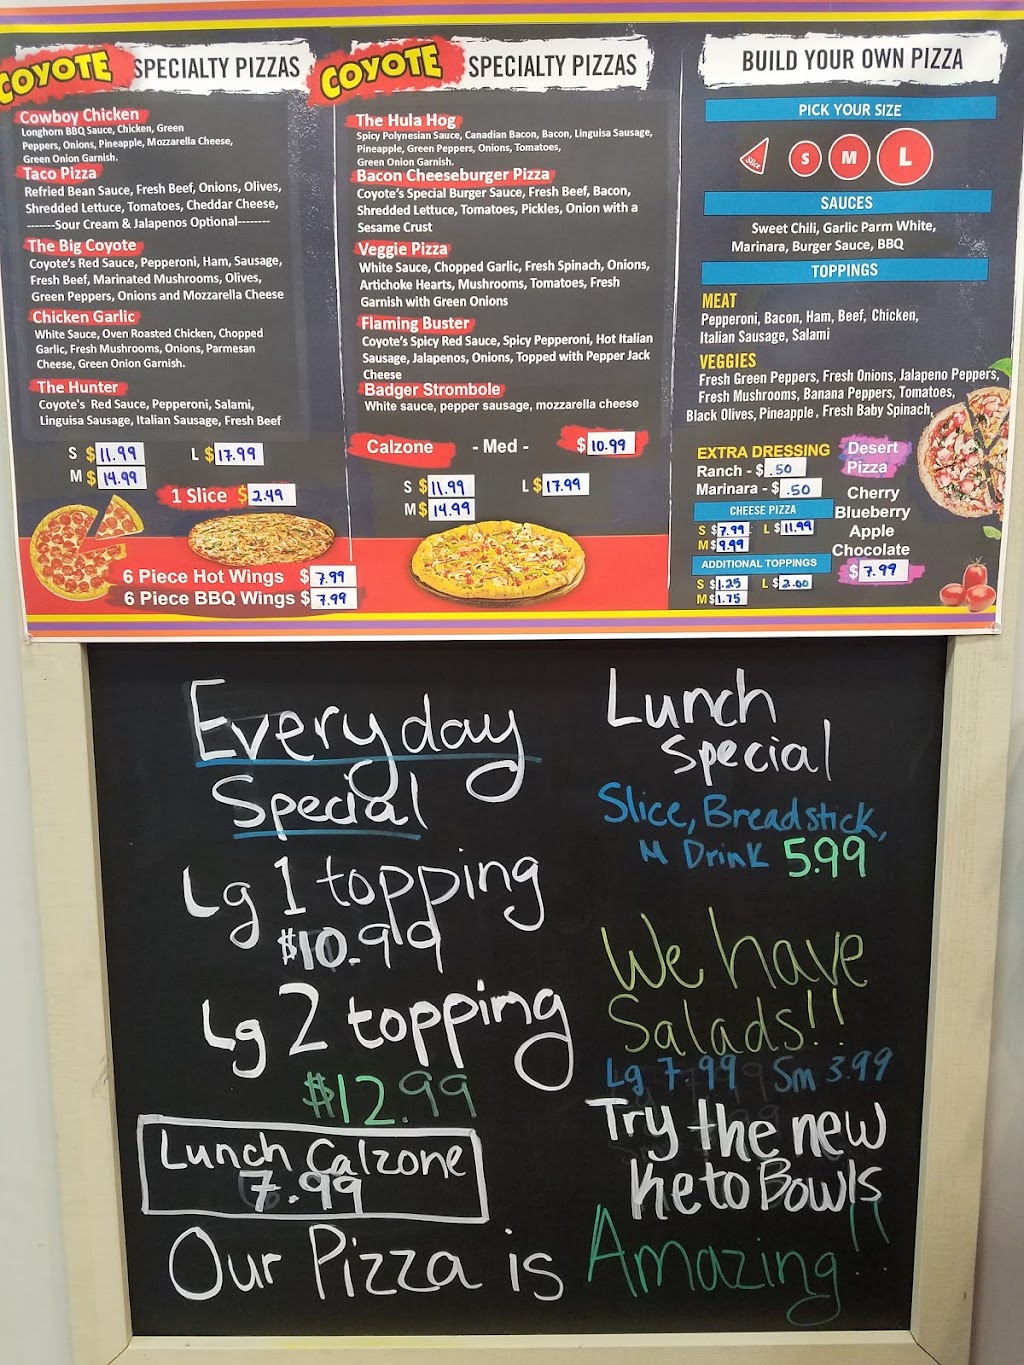 COYOTE SPECIALTY PIZZAS
Cowboy Chicken
Longhorn BBQ Sauce, Chicken, Green
Peppers, Onions, Pineapple, Mozzarella Cheese,
Green Onion Garnish.
Taco Pizza
Refried Bean Sauce, Fresh Beef, Onions, Olives,
Shredded Lettuce, Tomatoes, Cheddar Cheese,
-------Sour Cream & Jalapenos Optional--------
The Big Coyote
Coyote's Red Sauce, Pepperoni, Ham, Sausage,
Fresh Beef, Marinated Mushrooms, Olives,
Green Peppers, Onions and Mozzarella Cheese
Chicken Garlic
White Sauce, Oven Roasted Chicken, Chopped
Garlic, Fresh Mushrooms, Onions, Parmesan
Cheese, Green Onion Garnish.
The Hunter
Coyote's Red Sauce, Pepperoni, Salami,
Linguisa Sausage, Italian Sausage, Fresh Beef
S $11.99 L $17.99
M $14.99
1 Slice $2.49
6 Piece Hot Wings $7.99
6 Piece BBQ Wings $7.99
COYOTE SPECIALTY PIZZAS
The Hula Hog
Spicy Polynesian Sauce, Canadian Bacon, Bacon, Linguisa Sausage,
Pineapple, Green Peppers, Onions, Tomatoes,
Green Onion Garnish.
Bacon Cheeseburger Pizza
Coyote's Special Burger Sauce, Fresh Beef, Bacon,
Shredded Lettuce, Tomatoes, Pickles, Onion with a
Sesame Crust
Veggie Pizza
White Sauce, Chopped Garlic, Fresh Spinach, Onions,
Artichoke Hearts, Mushrooms, Tomatoes, Fresh
Garnish with Green Onions
Flaming Buster
Coyote's Spicy Red Sauce, Spicy Pepperoni, Hot Italian
Sausage, Jalapenos, Onions, Topped with Pepper Jack
Cheese
Badger Strombole
White sauce, pepper sausage, mozzarella cheese
Calzone - Med - $10.99
S $11.99 L $17.99
M $14.99
BUILD YOUR OWN PIZZA
PICK YOUR SIZE
Slice S M L
SAUCES
Sweet Chili, Garlic Parm White,
Marinara, Burger Sauce, BBQ
TOPPINGS
MEAT
Pepperoni, Bacon, Ham, Beef, Chicken,
Italian Sausage, Salami
VEGGIES
Fresh Green Peppers, Fresh Onions, Jalapeno Peppers,
Fresh Mushrooms, Banana Peppers, Tomatoes,
Black Olives, Pineapple , Fresh Baby Spinach,
EXTRA DRESSING
Ranch - $.50
Marinara - $.50
CHEESE PIZZA
S $7.99 L $11.99
M $9.99
ADDITIONAL TOPPINGS
S $1.25 L $2.00
M $1.75
Desert
Pizza
Cherry
Blueberry
Apple
Chocolate
$7.99
Everyday
Special
Lg 1 topping
$10.99
Lg 2 topping
$12.99
Lunch Calzone
7.99
Lunch
special
Slice, Breadstick,
M Drink 5.99
We have
Salads!!
Lg 7.99 Sm 3.99
Try the new
Keto Bowls
Our Pizza is Amazing!!